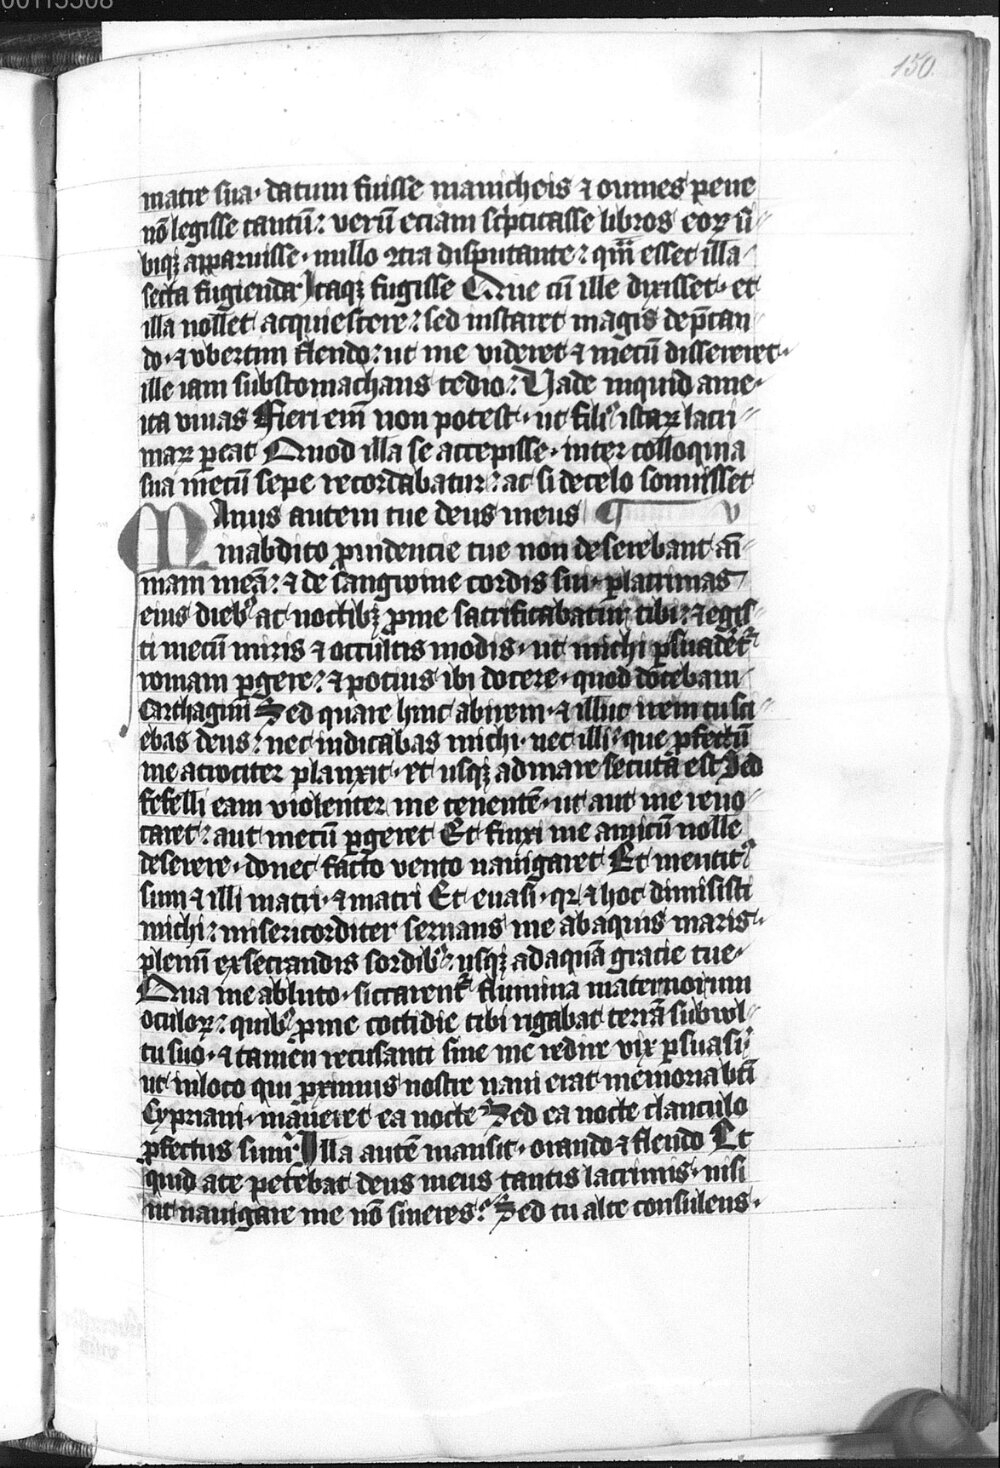 00115508
150.
matre sua· datum fuisse manicheis ⁊ omnes pene
nō legisse tantū: verū eciam scͥpticasse libros eoꝝ si
biqꝫ apparuisse· nullo ꝯtra disputante: qͣm esset illa
secta fugienda Itaqꝫ fugisse Que cū ille dixisset· et
illa nollet acquiescere: sed instaret magis dep̄can
do· ⁊ vbertim flendo: ut me videret ⁊ mecū dissereret·
ille iam substomachans tedio: Vade inquid ame·
ita vivas Fieri em̄ non potest· ut filiꝰ istaꝝ lacri
maꝝ ꝑeat Quod illa se accepisse· inter colloquia
sua mecū sepe recordabatur: ac si de celo sonuisset
Manus autem tue deus meus ¶ v
in abdito ꝓuidencie tue non deserebant ani
mam meā: ⁊ de sangwine cordis sui· ꝑ lacrimas
eius diebꝰ ac noctibꝫ ꝓ me sacrificabatur tibi: ⁊ egis
ti mecū miris ⁊ occultis modis· ut michi ꝑsuaderet᷑
romam ꝑgere: ⁊ pocius ibi docere· quod docebam
Carthagini Sed quare hinc abirem· ⁊ illuc irem tu sci
ebas deus: nec indicabas michi· nec illi· que ꝓfectū
me atrociter planxit· et usqꝫ ad mare secuta est Sed
fefelli eam violenter me tenentē· ut aut me revo
caret: aut mecū ꝑgeret Et finxi me amicū nolle
deserere· donec facto vento navigaret Et mentitꝰ
sum ⁊ illi matri· ⁊ matri Et evasi· qꝛ ⁊ hoc dimisisti
michi: misericorditer servans me ab aquis maris·
plenū exsecrandis sordibꝰ: usqꝫ ad aquā gracie tue·
Qua me abluto· siccarent᷑ flumina maternorum
oculoꝝ: quibꝰ ꝓ me cottidie tibi rigabat terrā sub vol
tu suo· ⁊ tamen recusanti sine me redire vix ꝑsuasi
ut in loco qui ꝓximus nostre navi erat memoria bt̄i
Cypriani· maneret ea nocte Sed ea nocte clanculo
ꝓfectus sum: Illa autē mansit· orando ⁊ flendo Et
quid a te petebat deus meus tantis lacrimis· nisi
ut navigare me nō sineres? Sed tu alte consulens·